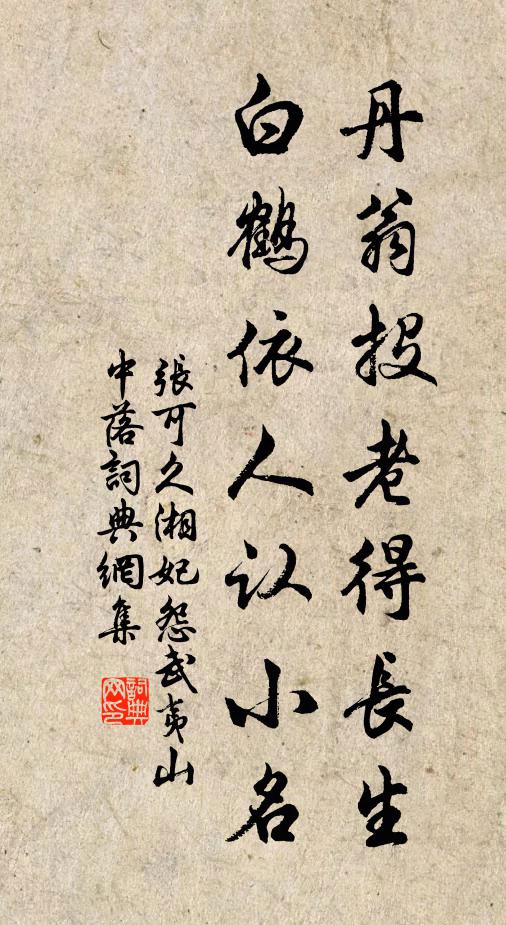 丹翁投老得長生
白鶴依人认小名
張可久湘妃怨武夷山
中落詞典網集
詞典网印